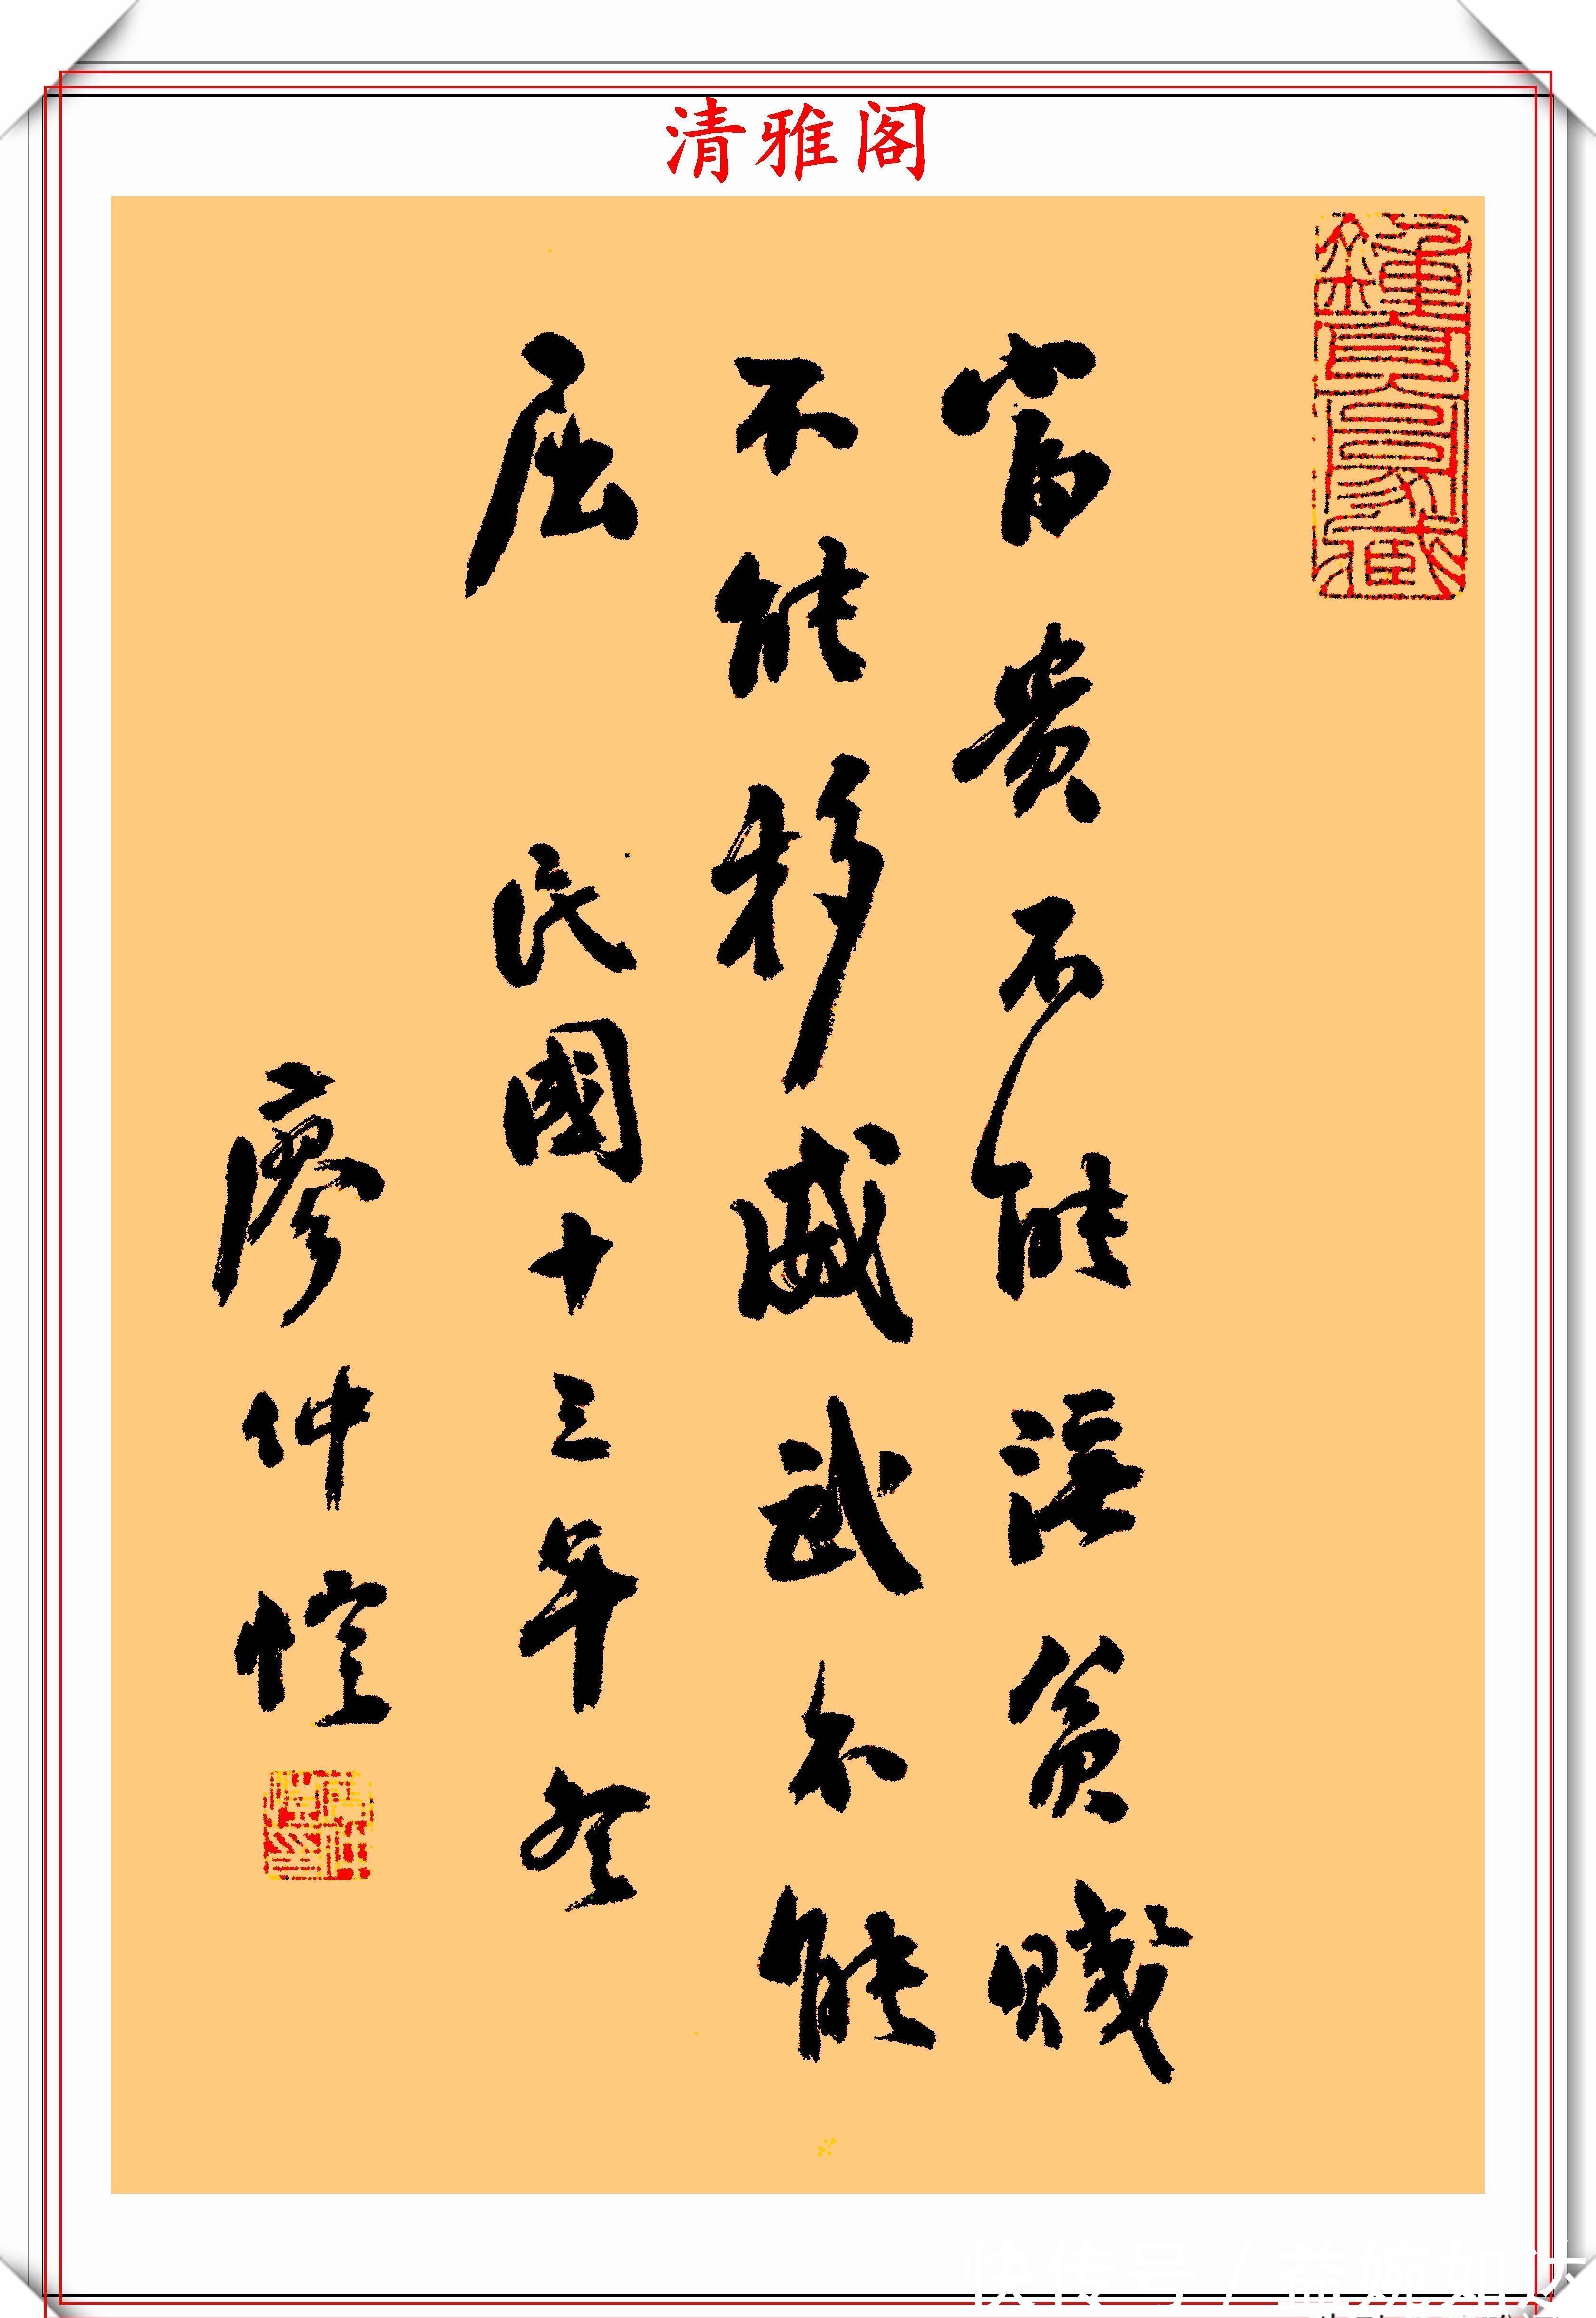 清雅阁
富贵不能淫贫贱
不能移威武不能
屈
民國十三年冬
廖仲愷